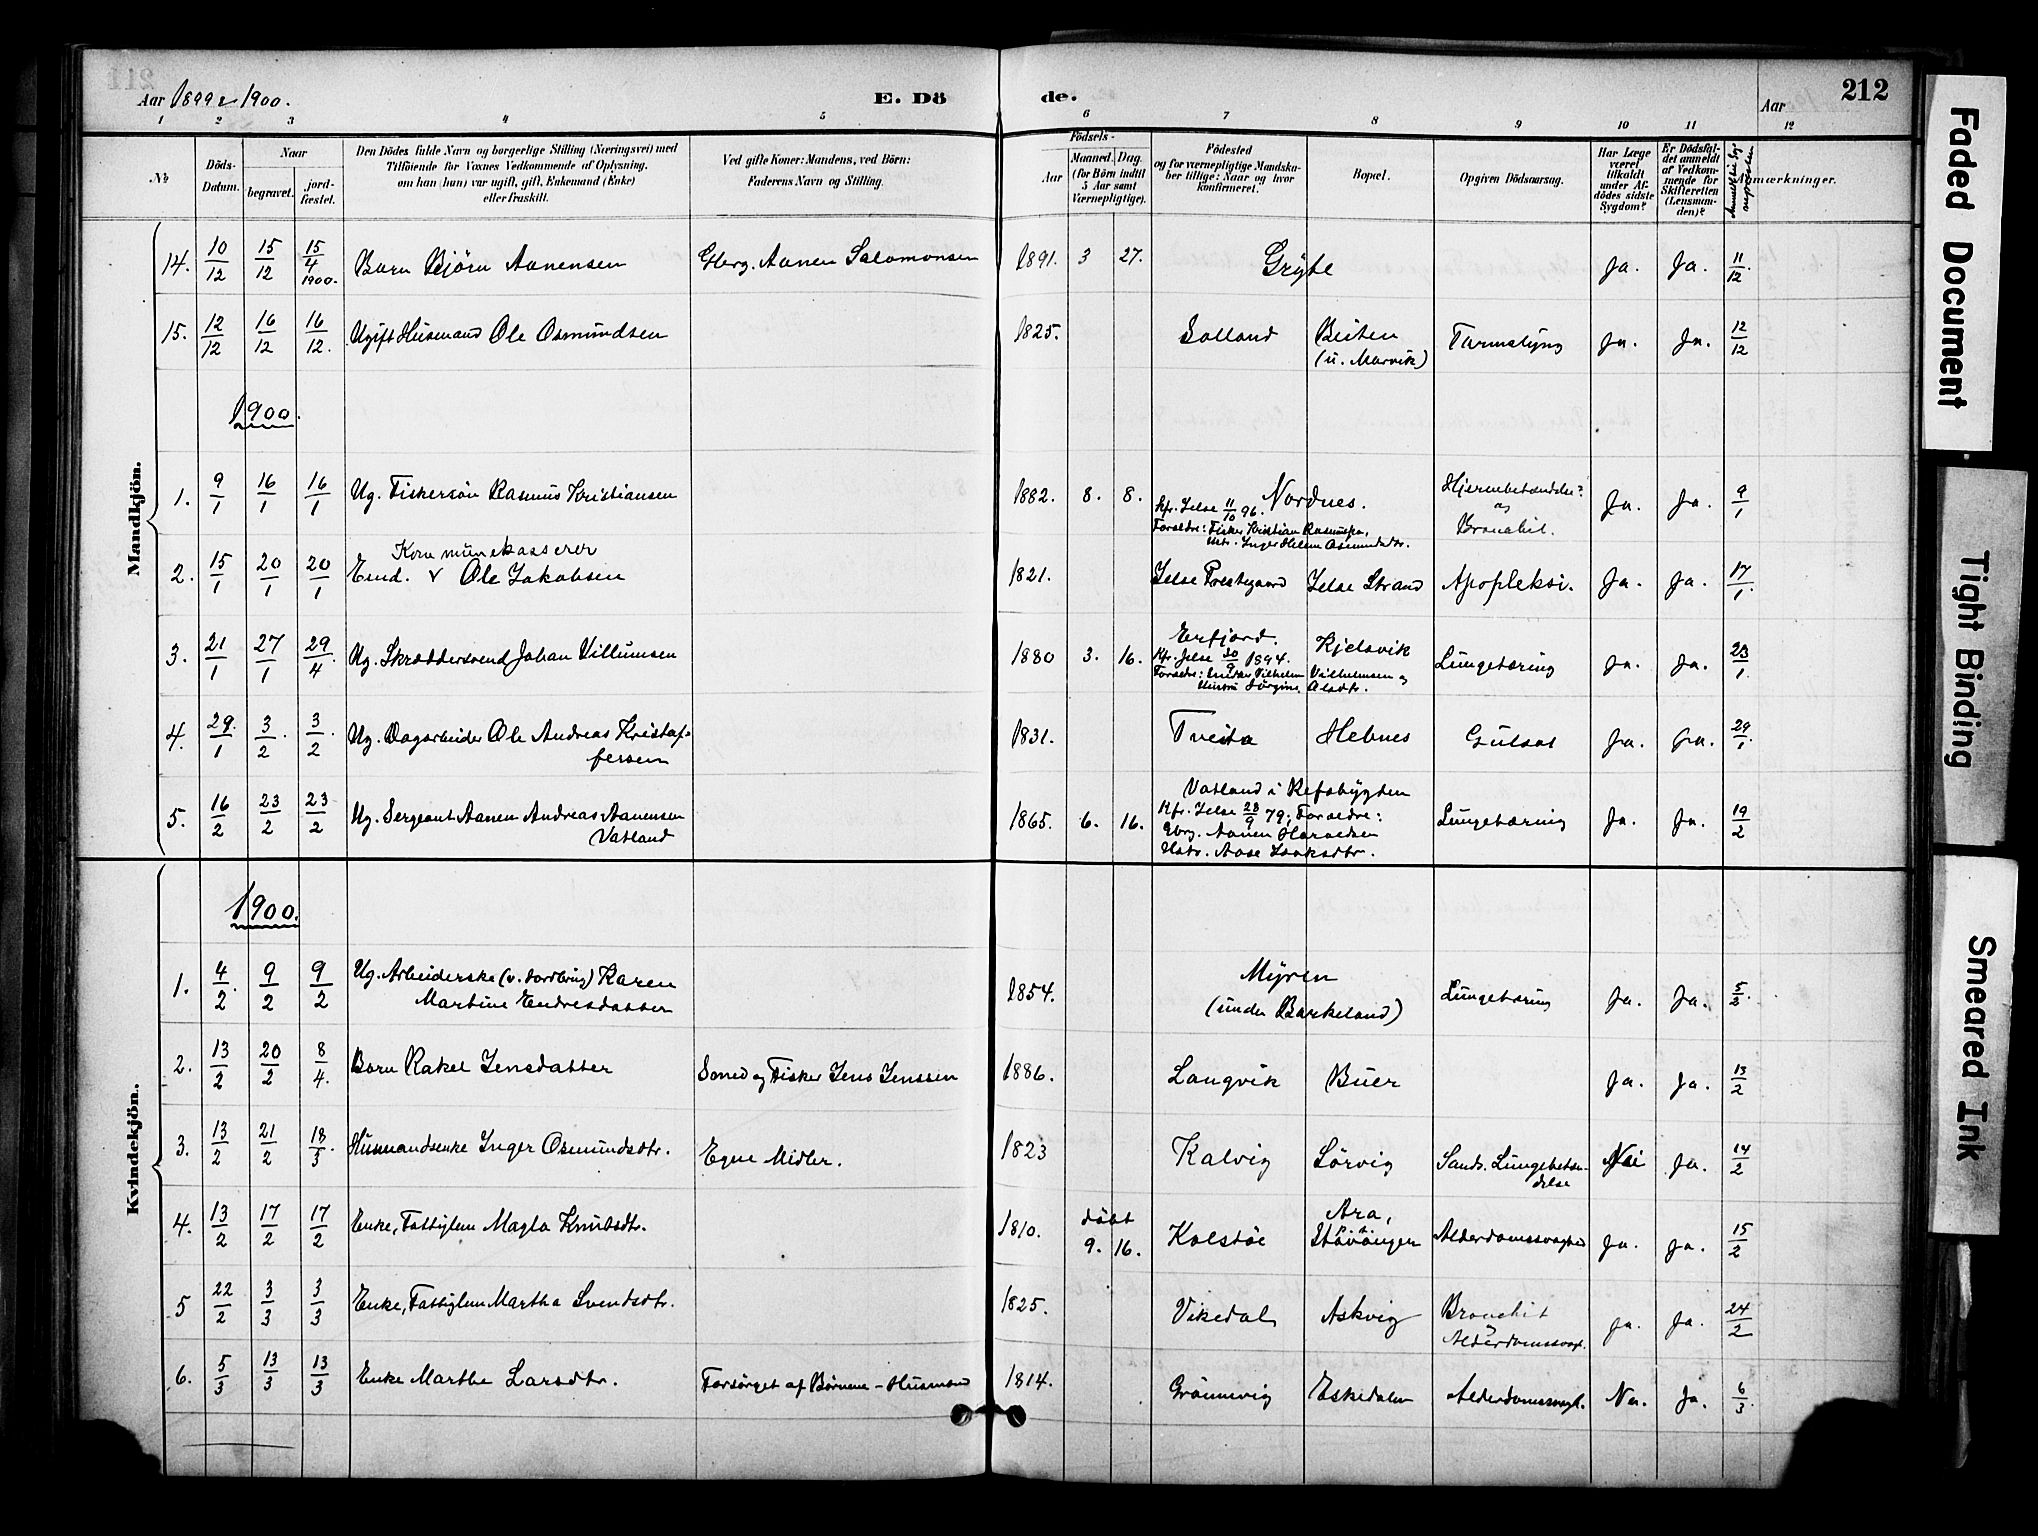 Aar 1899 & 1900.
E. Döde.
Aar
212
1 2 3 4 5 6 7 8 9 10 11 12
No
Döds-Datum.
Naar
begravet.
jordfæstet.
Den Dödes fulde Navn og borgerlige Stilling (Næringsvei) med
Tilföiende for Voxnes Vedkommende af Oplysning,
om han (hun) var ugift, gift, Enkemand (Enke)
eller fraskilt.
Ved gifte Koner: Mandens, ved Börn:
Faderens Navn og Stilling.
Födsels-
Aar
Maaned. Dag.
(for Börn indtil
5 Aar samt
Værnepligtige).
Födested
og for værnepligtige Mandska-
ber tillige: Naar og hvor
konfirmeret.
Bopæl.
Opgiven Dödsaarsag.
Har Læge
været
tilkaldt
under Af-
dödes sidste
Sygdom?
Er Dödsfal-
det anmeldt
af Vedkom-
mende for
Skifteretten
(Lensman-
den)?
Anmærkninger.
Mandkjön.
14. 10/12 15/12 15/4 1900. Barn Björn Aanensen Gbrg. Aanen Salomonsen 1891. 3 27. Gryte Ja. Ja. 11/12
15. 12/12 16/12 16/12. Ugift Husmand Ole Osmundsen 1825. Solland Beiten (u. Marvik) Tarmslyng Ja. Ja. 12/12
1900.
1. 9/1 16/1 16/1 Ug. Fiskersön Rasmus Kristiansen 1882. 8. 8. Nordnes. Kfr. Jelse 11/10 96. Hjernebetændelse? og Bronchit. Ja. Ja. 9/1
Forældre: Fisker Kristian Rasmussen, Hstr. Inger Helene Osmundsdtr.
2. 15/1 20/1 20/1 Emd. v Kommunekasserer Ole Jakobsen 1821. Jelse Prestegaard Jelse Strand Apopleksi. Ja. Ja. 17/1
3. 21/1 27/1 29/4 Ug. Skræddersvend Johan Villumsen 1880 3. 16. Erfjord. Kjelsvik Lungetæring Ja. Ja. 23/1
Kfr. Jelse 30/9 1894.
Forældre: Vilhelm Vilhelmsen og
Hustru Jörgine Olsdtr.
4. 29/1 3/2 3/2 Ug. Dagarbeider Ole Andreas Kristof-
fersen 1831. Tveita Hebnes Gulsot Ja. Ja. 29/1
5. 16/2 23/2 23/2 Ug. Sergeant Aanen Andreas Aanensen
Vatland 1865. 6. 16. Vatland i Refsbygden Lungetæring Ja. Ja. 19/2
Kfr. Jelse 28/9 79; Forældre:
Gbrg. Aanen Haraldsen
Hstr. Aase Isaksdtr.
Kvindekjön.
1900.
1. 4/2 9/2 9/2 Ug. Arbeiderske Karen
Martine Endresdatter 1854. Myren
(under Barkeland) Lungetæring Ja. Ja. 5/2.
2. 13/2 20/2 8/4. Barn Rakel Jensdatter Smed og Fisker Jens Jenssen 1886. Langvik Buer Ja. Ja. 13/2
3. 13/2 21/2 18/3. Husmandsenke Inger Osmundsdtr. Egne Midler. 1823 Kalvig Sörvig Sands. Lungebetæn-
delse Nei Ja. 14/2
4. 13/2 17/2 17/2 Enke, Fattiglem Magla Knutsdtr. 1810. döbt 9. 16. Kolstöe Ara, Alderdomssvaghed Ja. Ja. 15/2
5 22/2 3/3 3/3 Enke, Fattiglem Martha Svendsdtr. 1825. Vikedal Askvig Bronchit
og
Alderdomssvagh. Ja. Ja. 24/2
6. 5/3 13/3 13/3 Enke Marthe Larsdtr. Forsörget af Börnene – Husmand 1814. Grönnevig Eskedalen Alderdomssvagh. Nei. Ja. 6/3.
Faded Document
Tight Binding
Smeared Ink